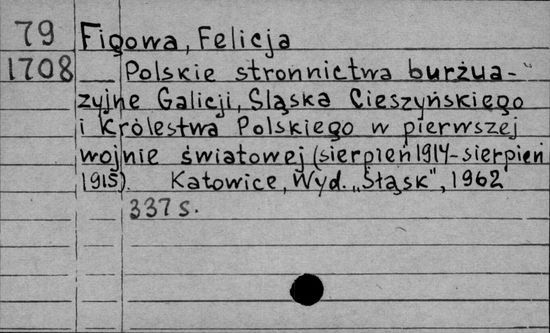 79 Figowa, Felicja
1708 Polskie stronnictwa burżua-
zyjne Galicji, Śląska Cieszyńskiego
i Królestwa Polskiego w pierwszej
wojnie światowej (sierpień 1914-sierpień
1915). Katowice, Wyd. „Śląsk", 1962
337 s.